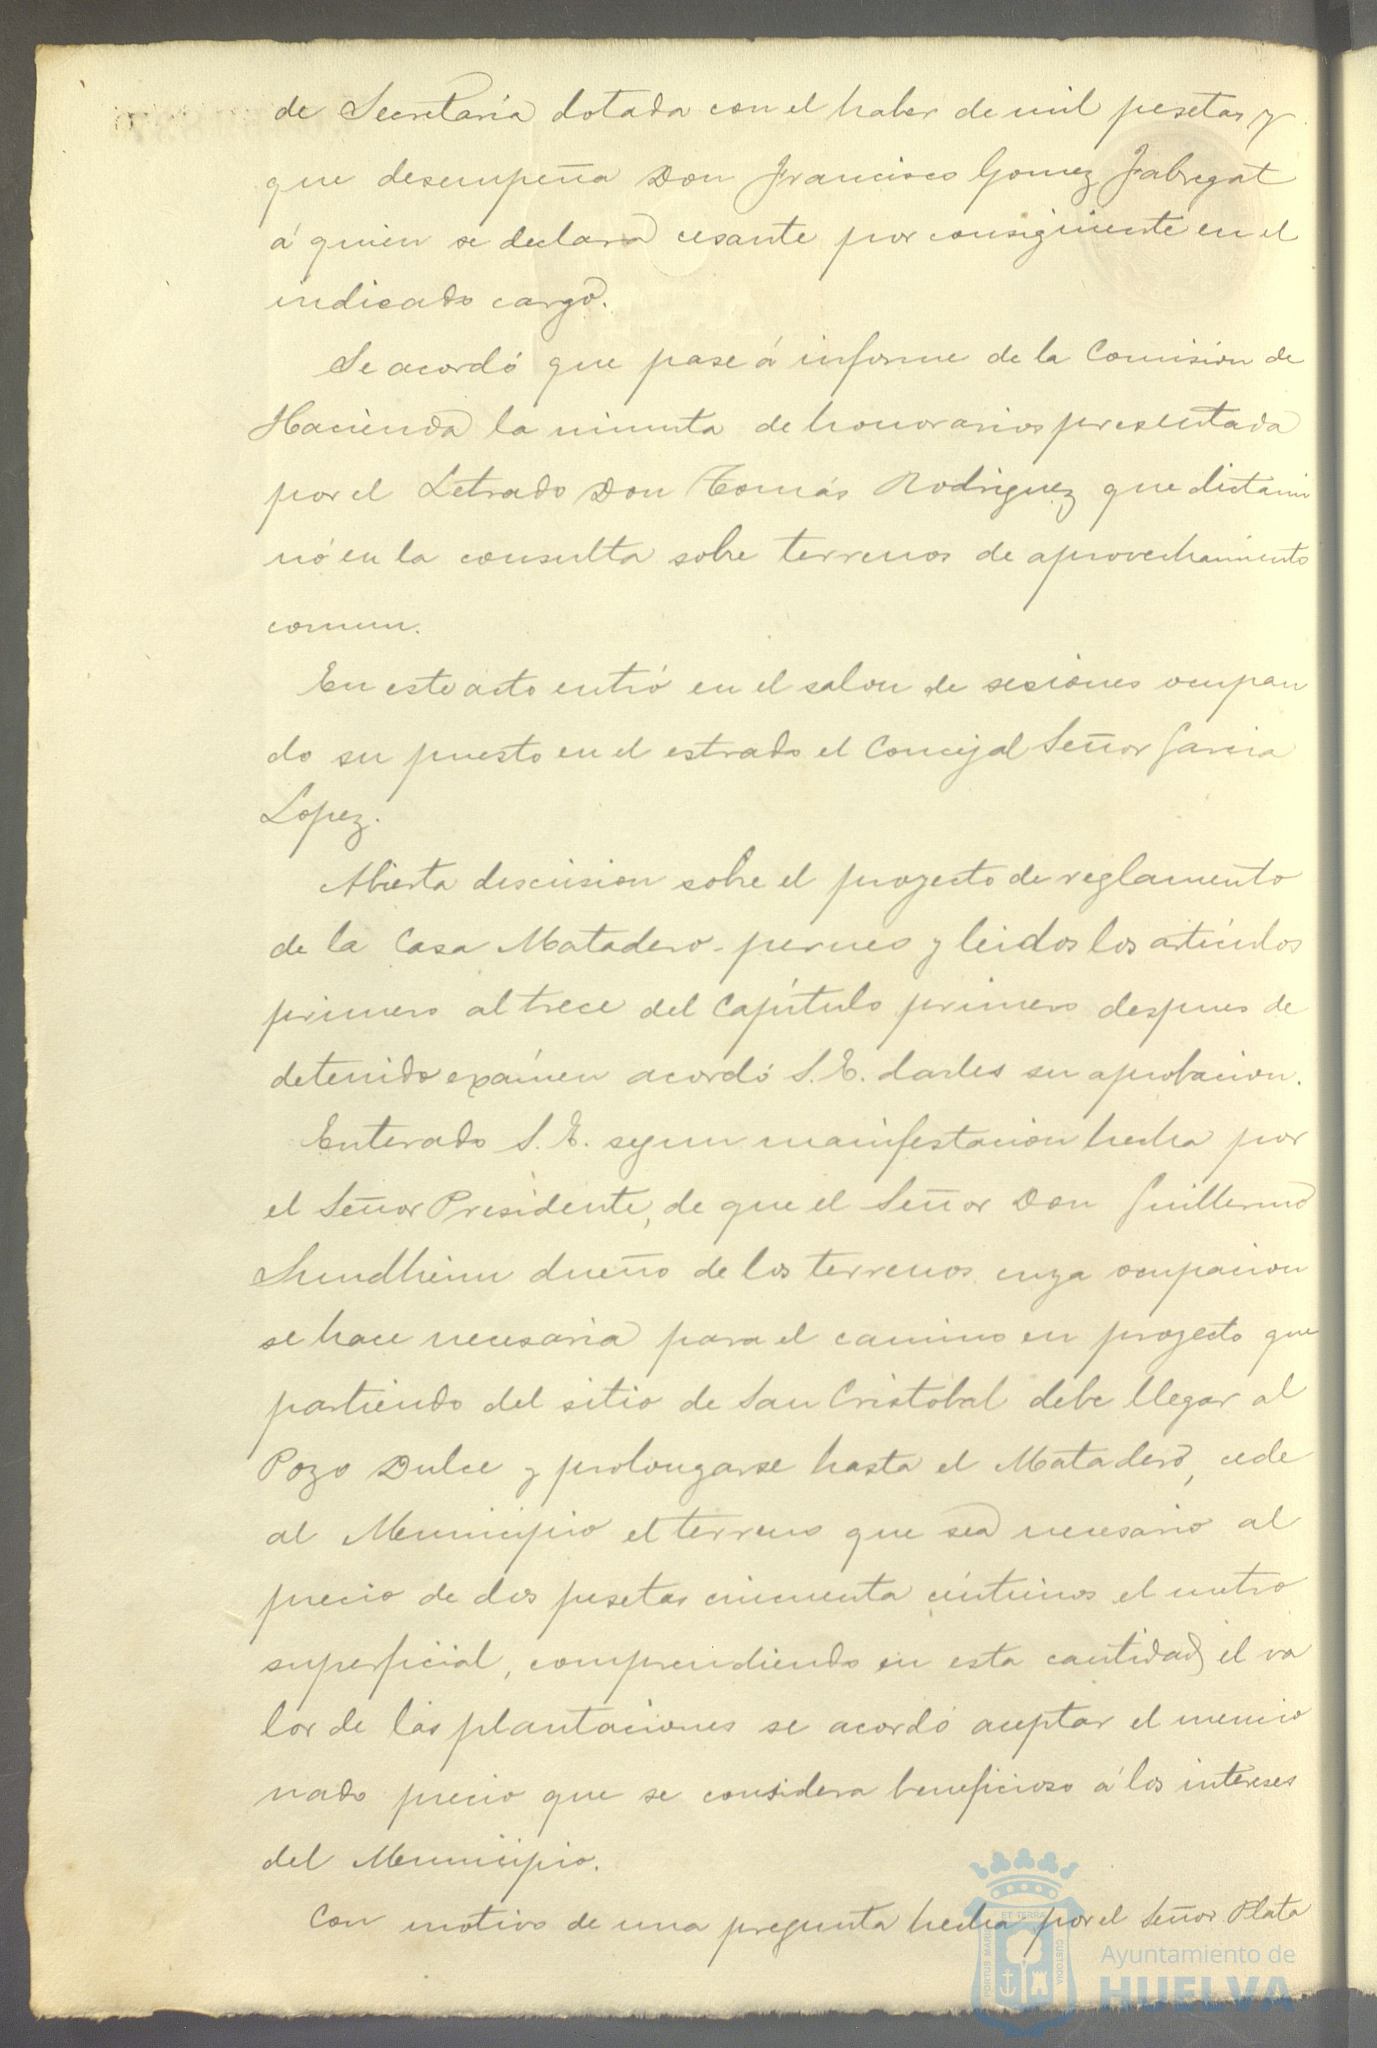 de Secretaria dotada con el haber de mil pesetas y
que desempeña Don Francisco Gomez Fabregat
á quien se declara cesante por consiguiente en el
indicado cargo.
Se acordó que pase á informe de la Comision de
Hacienda la minuta de honorarios presentada
por el Letrado Don Tomás Rodriguez que dictami
nó en la consulta sobre terrenos de aprovechamiento
comun.
En este acto entró en el salon de sesiones ocupan
do su puesto en el estrado el Concejal Señor Garcia
Lopez.
Abierta discusion sobre el proyecto de reglamento
de la Casa Matadero-perneo y leidos los artículos
primero al trece del Capítulo primero despues de
detenido exámen acordó S. E. darles su aprobacion.
Enterado S. E. segun manifestacion hecha por
el Señor Presidente, de que el Señor Don Guillermo
Sundheim dueño de los terrenos cuya ocupacion
se hace necesaria para el camino en proyecto que
partiendo del sitio de San Cristobal debe llegar al
Pozo Dulce y prolongarse hasta el Matadero, cede
al Municipio el terreno que sea necesario al
precio de dos pesetas cincuenta céntimos el metro
superficial, comprendiendo en esta cantidad el va
lor de las plantaciones se acordó aceptar el mencio
nado precio que se considera beneficioso á los intereses
del Municipio.
Con motivo de una pregunta hecha por el Señor Plata
PORTUS MARIS ET TERRAE CUSTODIA
Ayuntamiento de
HUELVA